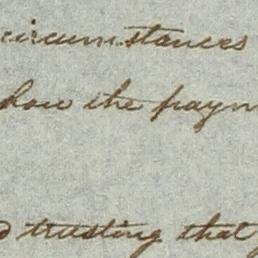 circumstances
how the paym
d trusting that